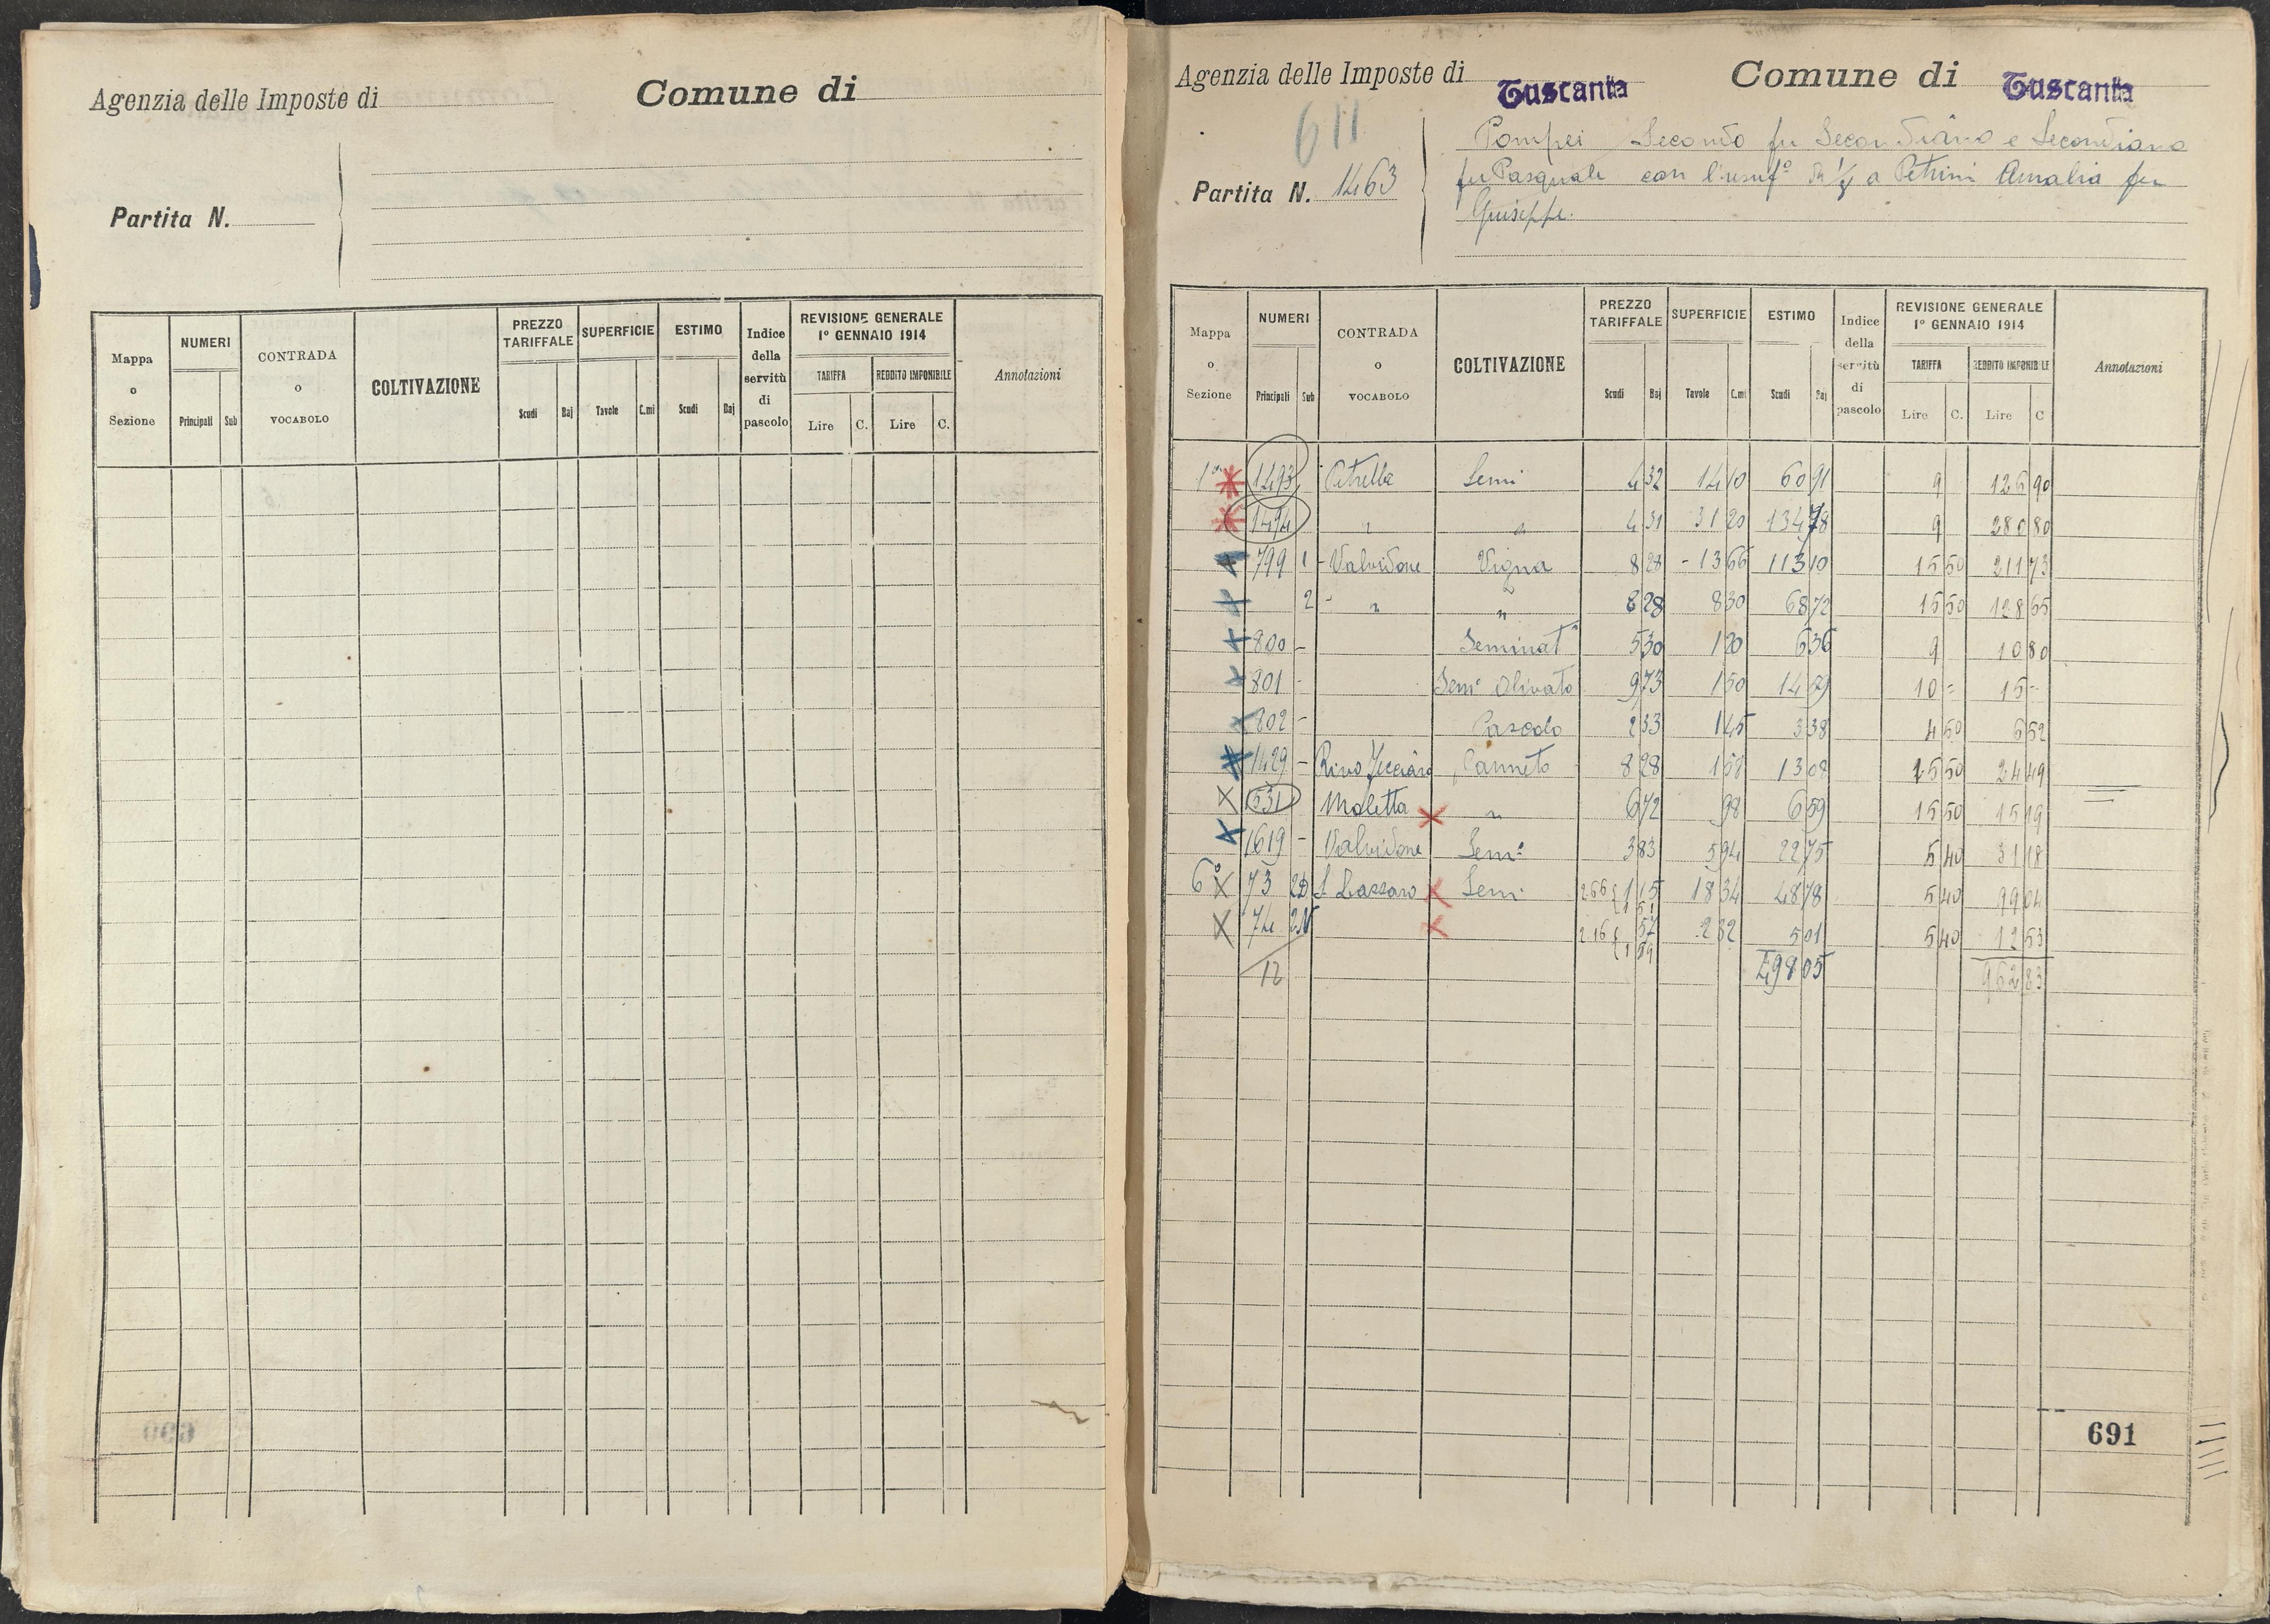 Agenzia delle Imposte di
Comune di
Partita N.
Mappa o Sezione
NUMERI
Principali Sub
CONTRADA o VOCABOLO
COLTIVAZIONE
PREZZO TARIFFALE
Scudi Baj
SUPERFICIE
Tavole C.mi
ESTIMO
Scudi Baj
Indice della servitù di pascolo
REVISIONE GENERALE
1º GENNAIO 1914
TARIFFA REDDITO IMPONIBILE
Lire C. Lire C.
Annotazioni
Agenzia delle Imposte di Tuscania Comune di Tuscania
611
Partita N. 1463
Pompei Secondo fu Secondiano e Secondiano
fu Pasquale con l'usuf.º di 1/4 a Petrini Amalia fu
Giuseppe.
Mappa o Sezione
NUMERI
Principali Sub
CONTRADA o VOCABOLO
COLTIVAZIONE
PREZZO TARIFFALE
Scudi Baj
SUPERFICIE
Tavole C.mi
ESTIMO
Scudi Baj
Indice della servitù di pascolo
REVISIONE GENERALE
1º GENNAIO 1914
TARIFFA REDDITO IMPONIBILE
Lire C. Lire C
Annotazioni
1ª 1493 Petrella Semi 4 32 14 10 60 91 9 126 90
1494 " " 4 31 31 20 134 78 9 280 80
799 1 - Valvidone Vigna 8 28 - 13 66 113 10 15 50 211 73
2 - " " 8 28 8 30 68 72 15 50 128 65
800 - Seminatº 5 30 1 20 6 36 9 10 80
801 - Semº Olivato 9 73 1 50 14 59 10 = 15 -
802 - Pascolo 2 33 1 45 3 38 4 50 6 52
1429 - Rivo Canneto 8 28 1 58 13 08 15 50 24 49
1531 Moletta " 6 72 98 6 59 15 50 15 19
1619 - Valvidone Semº 3 83 5 94 22 75 5 40 31 18
6º 73 2D S. Lazzaro Semi 2 66 { 1 15 1 51 18 34 48 78 5 40 99 04
74 2N 2 16 { 57 1 59 2 32 5 01 5 40 12 53
12 498 05 962 83
691